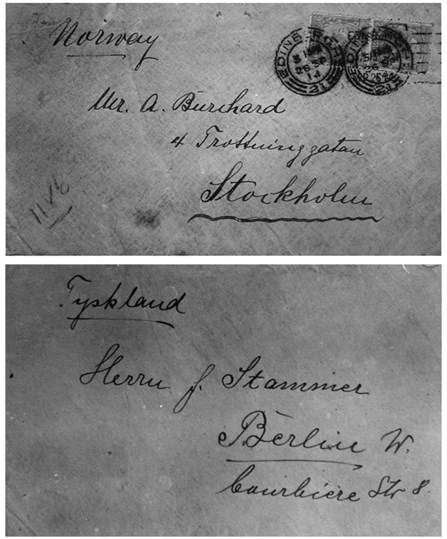 Norway
EDINBURGH
26 SP
14
Mr. A. Burchard
4 Trottninggatan
Stockholm
Tyskland
Herrn J. Stammer
Berlin W.
Courbiere Str 8.